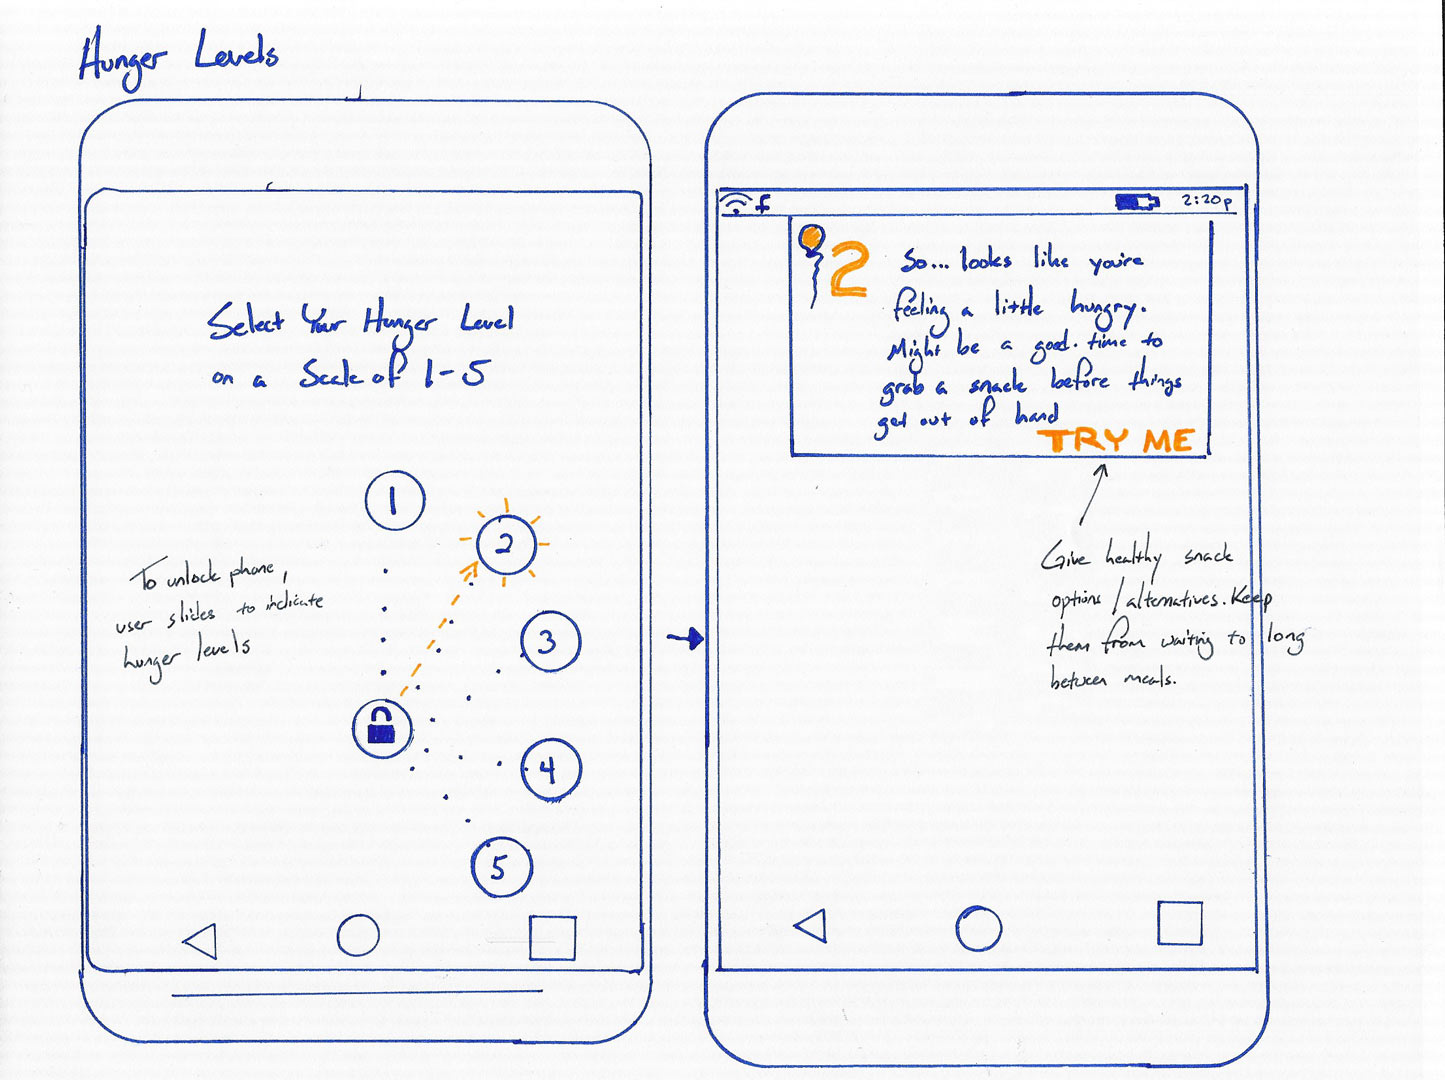 Hunger Levels
Select Your Hunger Level
on a Scale of 1-5
1
2
3
4
5
To unlock phone,
user slides to indicate
hunger levels
f
2:20p
2
So... looks like you're
feeling a little hungry.
Might be a good. time to
grab a snack before things
get out of hand
TRY ME
Give healthy snack
options / alternatives. Keep
them from waiting to long
between meals.